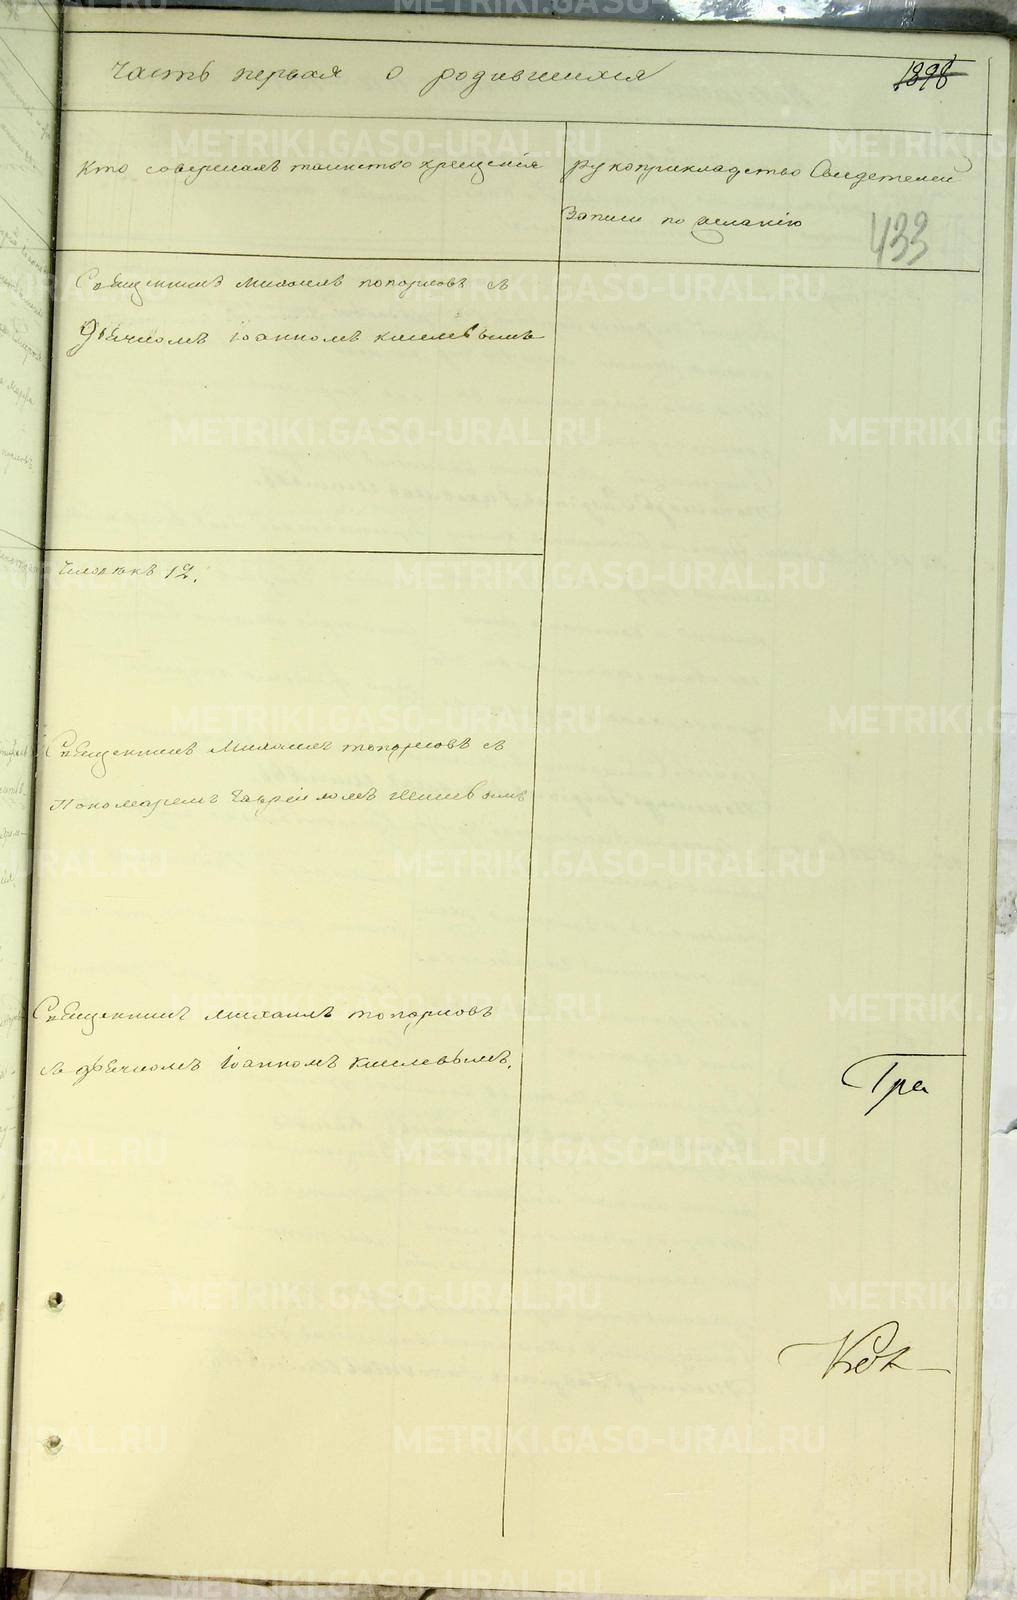 Часть первая о родившихся
1898
Кто совершалъ таинство крещенія
рукоприкладство Свидетелей
Записи по желанію
433
Священникъ Михаилъ Топорковъ съ
дьячкомъ Іоанномъ Киселевымъ
Человѣкъ 12.
Священникъ Михаилъ Топорковъ съ
Пономаремъ Гавріиломъ
Священникъ Михаилъ Топорковъ
съ дьячкомъ Іоанномъ Киселевымъ.
Гра
METRIKI.GASO-URAL.RU